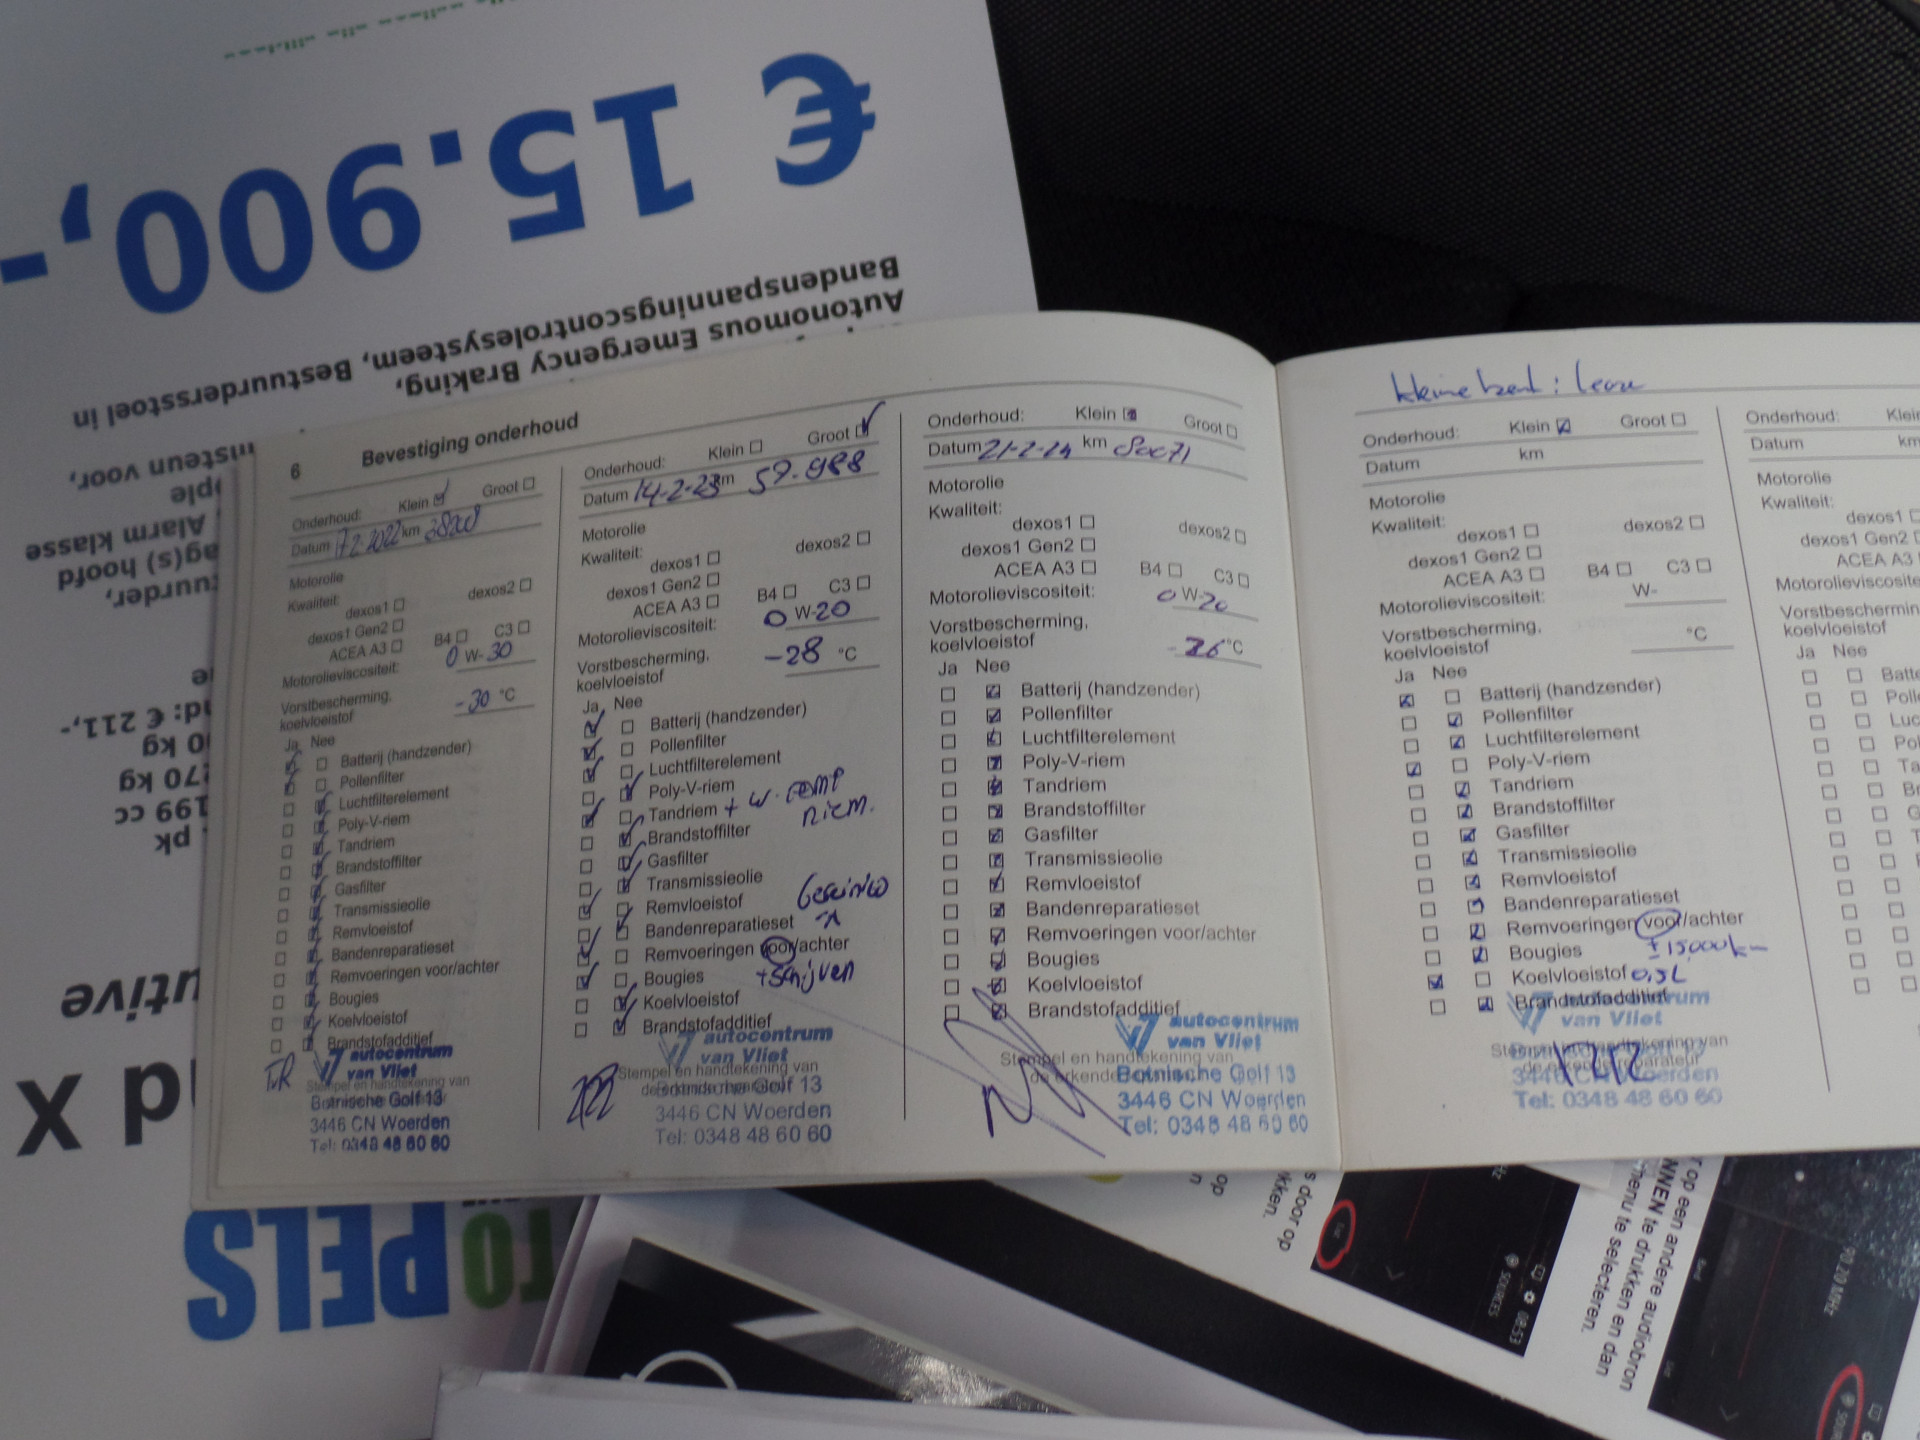 € 15.900,-
Bandenspanningscontrolesysteem, Bestuurdersstoel in
Autonomous Emergency Braking,
nsteun voor,
Alarm klasse
ag(s) hoofd
tuurder,
nd: € 211,-
0 kg
270 kg
199 cc
pk
utive
d X
TO PELS
6 Bevestiging onderhoud
Onderhoud: Klein Groot
Datum 17-2-2022 km
Motorolie
Kwaliteit: dexos1 dexos2
dexos1 Gen2
ACEA A3 B4 C3
Motorolieviscositeit: 0 W-30
Vorstbescherming,
koelvloeistof -30 °C
Ja Nee
Batterij (handzender)
Pollenfilter
Luchtfilterelement
Poly-V-riem
Tandriem
Brandstoffilter
Gasfilter
Transmissieolie
Remvloeistof
Bandenreparatieset
Remvoeringen voor/achter
Bougies
Koelvloeistof
Brandstofadditief
TvR
autocentrum
van Vliet
Stempel en handtekening van
Botnische Golf 13
3446 CN Woerden
Tel: 0348 48 60 60
Onderhoud: Klein Groot
Datum 14-2-23 km 59.988
Motorolie
Kwaliteit:
dexos1 dexos2
dexos1 Gen2
ACEA A3 B4 C3
Motorolieviscositeit: 0 W-20
Vorstbescherming,
koelvloeistof -28 °C
Ja Nee
Batterij (handzender)
Pollenfilter
Luchtfilterelement
Poly-V-riem
Tandriem + w. pomp
riem.
Brandstoffilter
Gasfilter
Transmissieolie
Remvloeistof
Bandenreparatieset
Remvoeringen voor/achter
Bougies + schijven
Koelvloeistof
Brandstofadditief
autocentrum
van Vliet
Stempel en handtekening van
Botnische Golf 13
3446 CN Woerden
Tel: 0348 48 60 60
Onderhoud: Klein Groot
Datum 21-2-24 km 80071
Motorolie
Kwaliteit:
dexos1 dexos2
dexos1 Gen2
ACEA A3 B4 C3
Motorolieviscositeit: 0 W-20
Vorstbescherming,
koelvloeistof -26 °C
Ja Nee
Batterij (handzender)
Pollenfilter
Luchtfilterelement
Poly-V-riem
Tandriem
Brandstoffilter
Gasfilter
Transmissieolie
Remvloeistof
Bandenreparatieset
Remvoeringen voor/achter
Bougies
Koelvloeistof
Brandstofadditief
autocentrum
van Vliet
Stempel en handtekening van
Botnische Golf 13
3446 CN Woerden
Tel: 0348 48 60 60
Onderhoud: Klein Groot
Datum km
Motorolie
Kwaliteit:
dexos1 dexos2
dexos1 Gen2
ACEA A3 B4 C3
Motorolieviscositeit: W-
Vorstbescherming,
koelvloeistof °C
Ja Nee
Batterij (handzender)
Pollenfilter
Luchtfilterelement
Poly-V-riem
Tandriem
Brandstoffilter
Gasfilter
Transmissieolie
Remvloeistof
Bandenreparatieset
Remvoeringen voor/achter
Bougies ± 15,000 km
Koelvloeistof 0,5L
Brandstofadditief
van Vliet
3446 CN Woerden
Tel: 0348 48 60 60
Onderhoud: Klein
Datum km
Motorolie
Kwaliteit:
dexos1
dexos1 Gen2
ACEA A3
Motorolieviscosite
Vorstbeschermin
koelvloeistof
Ja Nee
s door op
kken.
r op een andere audiobron
NNEN te drukken en dan
menu te selecteren.
SOURCES
08:53
90.20 MHz